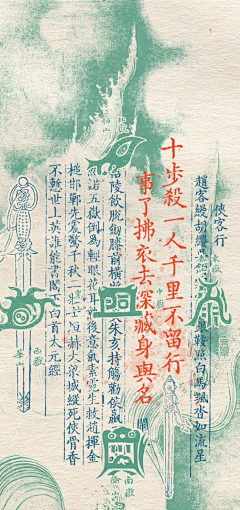 俠客行
趙客縵胡纓
鞍照白馬颯沓如流星
十步殺一人千里不留行
事了拂衣去深藏身與名
閒
信陵飲脫劍膝前橫
朱亥持觴勸侯嬴
然諾五嶽倒為輕眼花耳熱後意氣素霓生救趙揮金
槌邯鄲先震驚千秋二壯士烜赫大梁城縱死俠骨香
不慚世上英誰能書閣下白首太元經
東嶽
西嶽
華山
南嶽